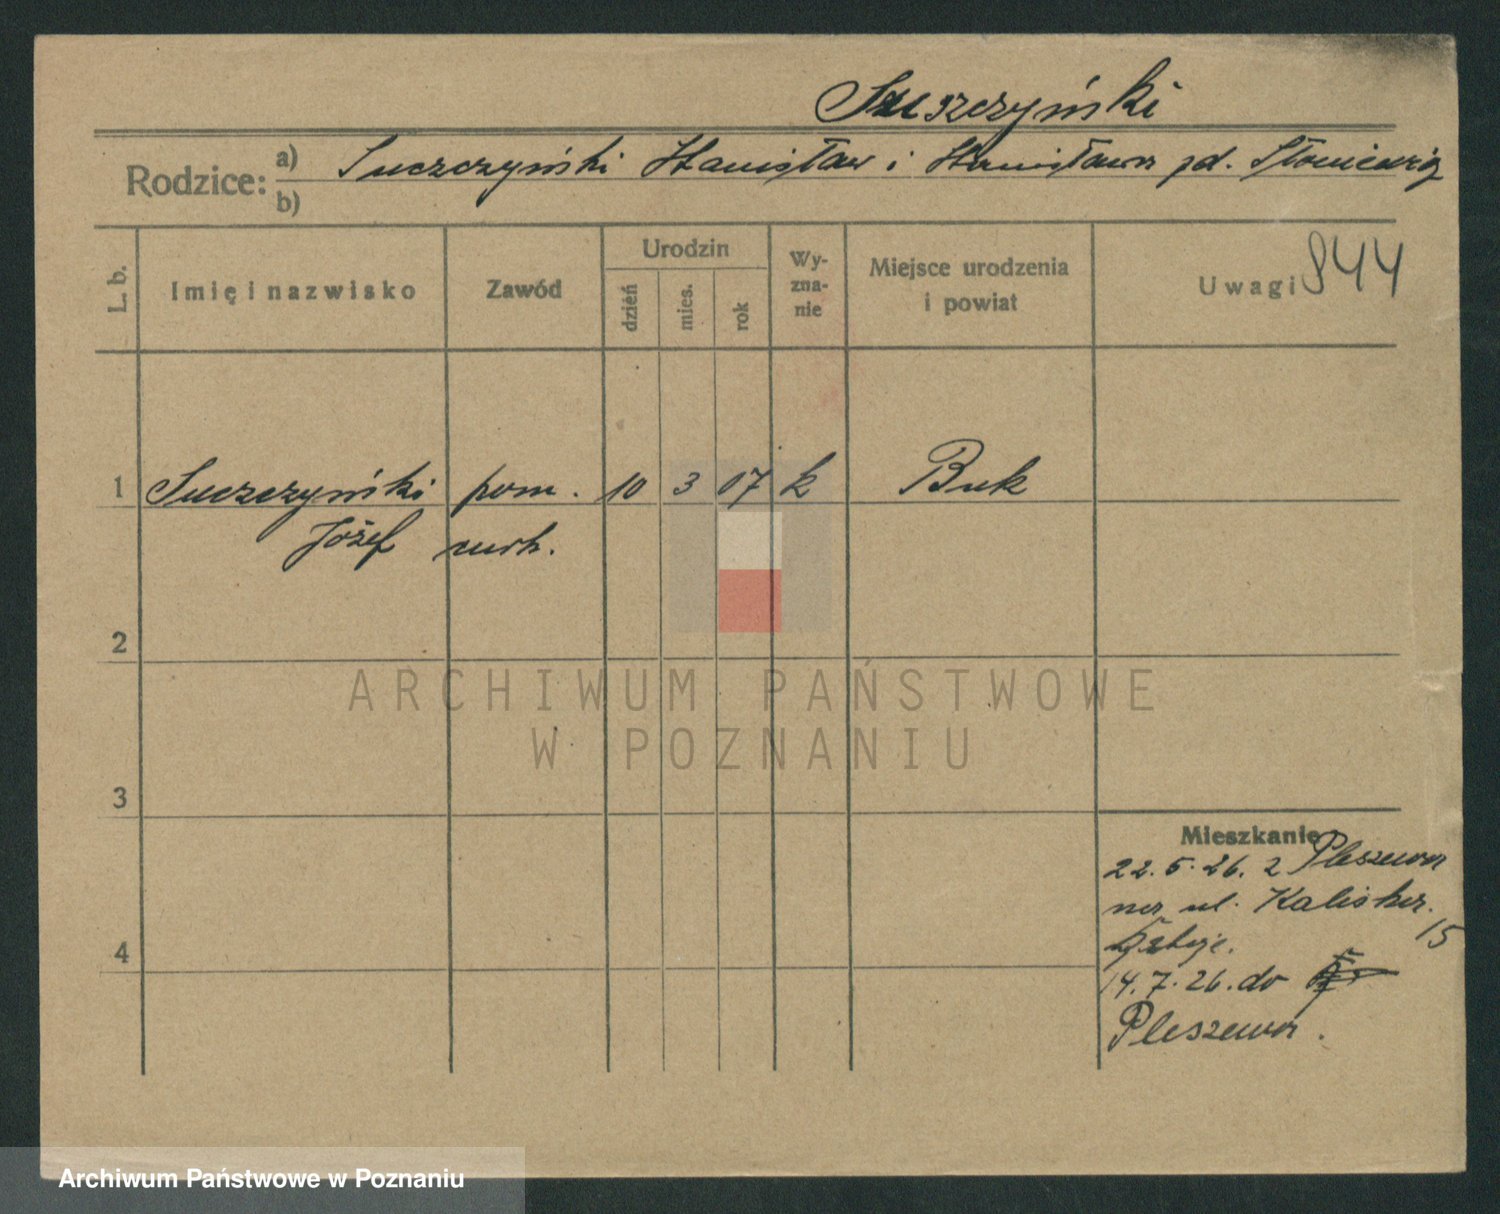 Suszczyński
Rodzice: a) Suszczyński Stanisław i Stanisława zd.
b)
L. b.
Imię i nazwisko
Zawód
Urodzin
dzień
mies.
rok
Wy-
zna-
nie
Miejsce urodzenia
i powiat
Uwagi
844
1 Suszczyński pom. 10 3 07 k Buk
Józef
2
3
4
Mieszkanie
22.5.26. z Pleszewa
na ul. Kaliska.
15
14.7.26. do
Pleszewa.
ARCHIWUM PAŃSTWOWE
W POZNANIU
Archiwum Państwowe w Poznaniu